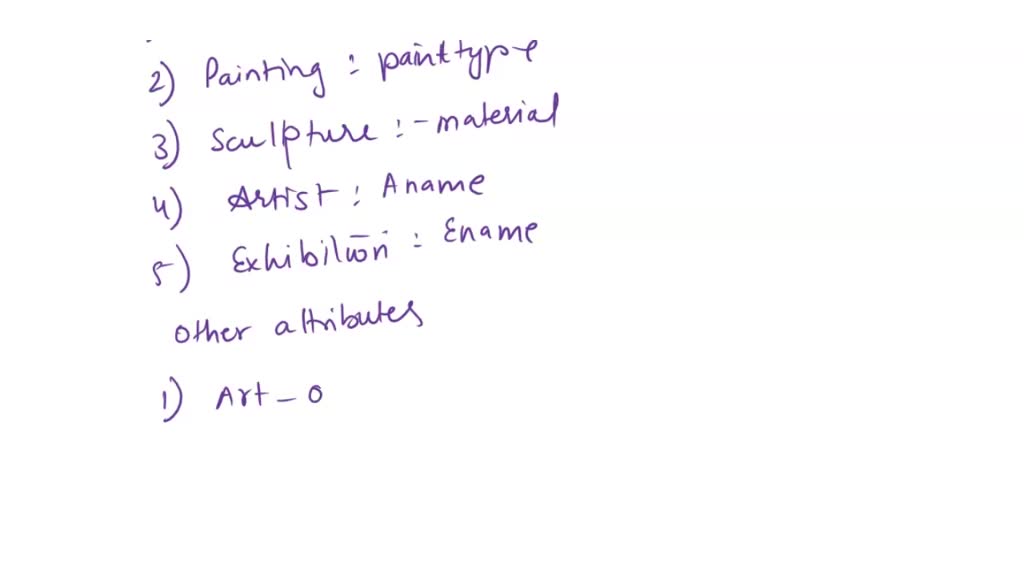 2) Painting : painttype
3) Sculpture :- material
4) Artist : Aname
5) Exhibition : Ename
other attributes
1) Art - O